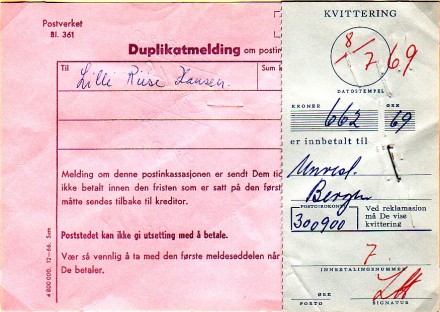 Postverket
Bl. 361
Duplikatmelding om postin
Til
Sum k
Lilli Riise Hansen.
Melding om denne postinkassasjonen er sendt Dem tid
ikke betalt innen den fristen som er satt på den først
måtte sendes tilbake til kreditor.
Poststedet kan ikke gi utsetting med å betale.
Vær så vennlig å ta med den første meldeseddelen når
De betaler.
4 800 000. 12-66. Sem
KVITTERING
8/7 69.
DATOSTEMPEL
KRONER
ØRE
662
69
er innbetalt til
Bergen
POSTGIROKONTO
300900
Ved reklamasjon
må De vise
kvittering
7
INNBETALINGSNUMMER
ØRE
PORTO
SIGNATUR